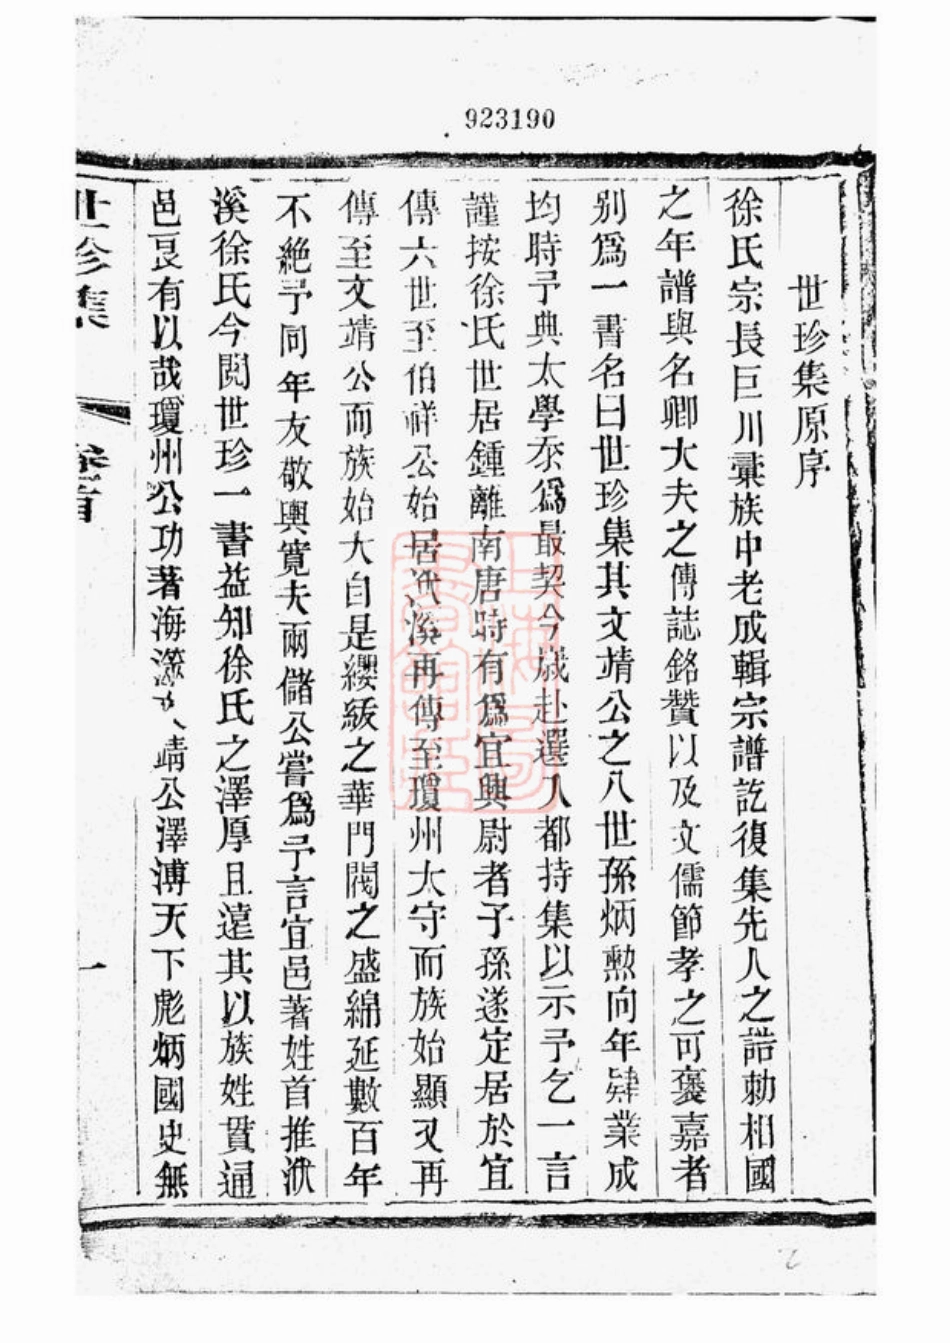 923190
世珍集原序
徐氏宗長巨川彚族中老成輯宗譜訖復集先人之誥勅相國
之年譜與名卿大夫之傳誌銘贊以及文儒節孝之可褒嘉者
别爲一書名曰世珍集其文靖公之八世孫炳勲向年肄業成
均時予典太學泰爲最契今歲赴選入都持集以示予乞一言
謹按徐氏世居鍾離南唐時有爲宜興尉者子孫遂定居於宜
傳六世至伯祥公始居洑溪再傳至瓊州太守而族始顯又再
傳至文靖公而族始大自是纓紱之華門閥之盛綿延數百年
不絶予同年友敬輿寬夫兩儲公嘗爲予言宜邑著姓首推洑
溪徐氏今閲世珍一書益知徐氏之澤厚且遠其以族姓貫通
邑良有以哉瓊州公功著海澨文靖公澤溥天下彪炳國史無
世珍集
卷首
一